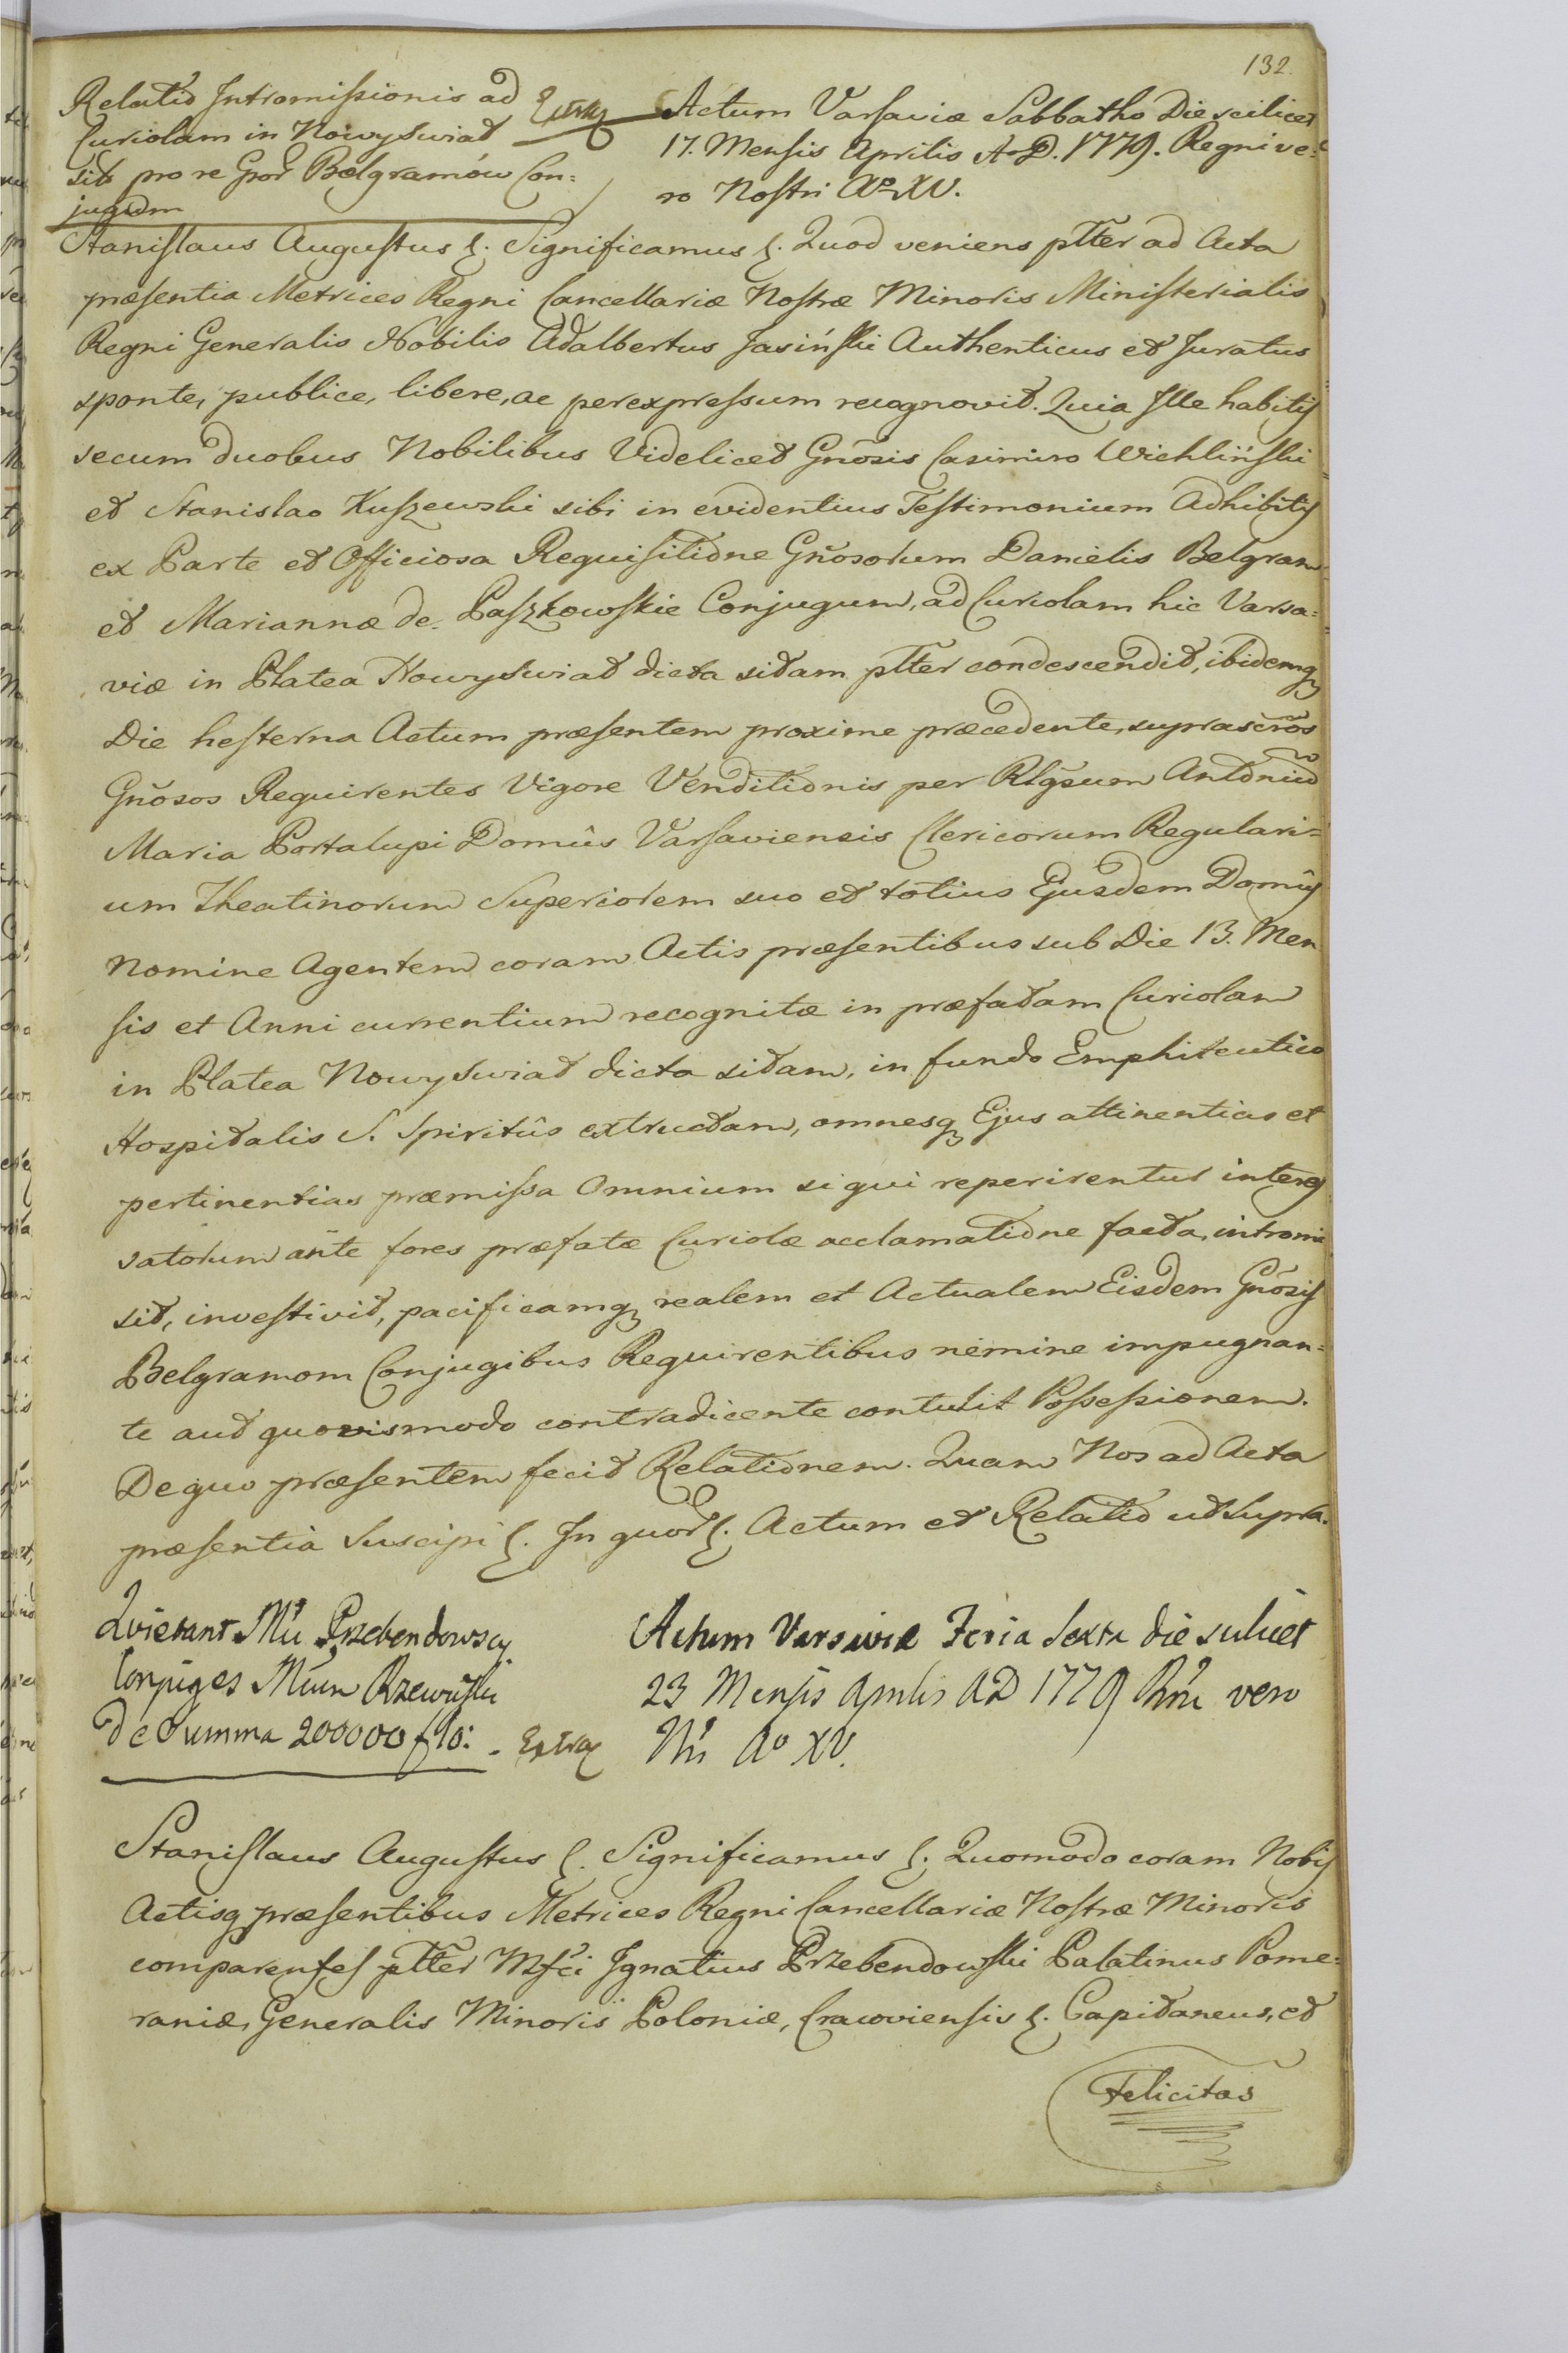 132.
Relatio Intromissionis ad
Curiolam in Nowy Swiat
sit pro re Gnor Belgramów Con=
jugum
Extrax
Actum Varsaviæ Sabbatho Die scilicet
17. Mensis Aprilis A. D. 1779. Regni ve=
ro Nostri Aº XV.
Stanislaus Augustus &. Significamus &. Quod veniens ptter ad Acta
præsentia Metrices Regni Cancellariæ Nostræ Minoris Ministerialis
Regni Generalis Nobilis Adalbertus Jasiński Authenticus et Juratus
sponte, publice, libere, ac per expressum recognovit. Quia Ille habitis
secum duobus Nobilibus Videlicet Gnosis Casimiro Wichliński
et Stanislao Kuszewski sibi in evidentius Testimonium Adhibitis
ex Parte et Officiosa Requisitione Gñosorum Danielis Belgram
et Mariannæ de Paszkowskie Conjugum, ad Curiolam hic Varsa=
viæ in Platea Nowy Swiat dicta sitam ptter condescendit, ibidemq
Die hesterna Actum præsentem proxime præcedente, suprascros
Gñosos Requirentes Vigore Venditionis per Rlgsum Antoniu
Maria Portalupi Domûs Varsaviensis Clericorum Regulari=
um Theatinorum Superiorem suo et totius Ejusdem Domûs
Nomine Agentem coram Actis præsentibus sub Die 13. Men
sis et Anni currentium recognitæ in præfatam Curiolam
in Platea Nowy Swiat dicta sitam, in fundo Emphiteutico
Hospitalis S. Spiritûs extructam, omnesq Ejus attinentias et
pertinentias præmissa Omnium si qui reperirentur interes
satorum ante fores præfatæ Curiolæ acclamatione facta, intromi
sit, investivit, pacificamq realem et Actualem Eisdem Gnosis
Belgramom Conjugibus Requirentibus nemine impugnan=
te aut quovismodo contradicente contulit Possessionem.
De quo præsentem fecit Relationem. Quam Nos ad Acta
præsentia Suscipi &. In quor &. Actum et Relatio ut supra.
Quietant Mci Przebendowscy
Conjuges Mcum Rzewuski
De Summa 200000 flo: - Extrax
Actum Varsaviæ Feria Sexta die scilicet
23 Mensis Aprilis AD 1779 Rni vero
Nri Aº XV.
Stanislaus Augustus &. Significamus &. Quomodo coram Nobis
Actisq præsentibus Metrices Regni Cancellariæ Nostræ Minoris
comparentes ptter Mfci Ignatius Przebendowski Palatinus Pome=
raniæ, Generalis Minoris Poloniæ, Cracoviensis &. Capitaneus, et
Felicitas